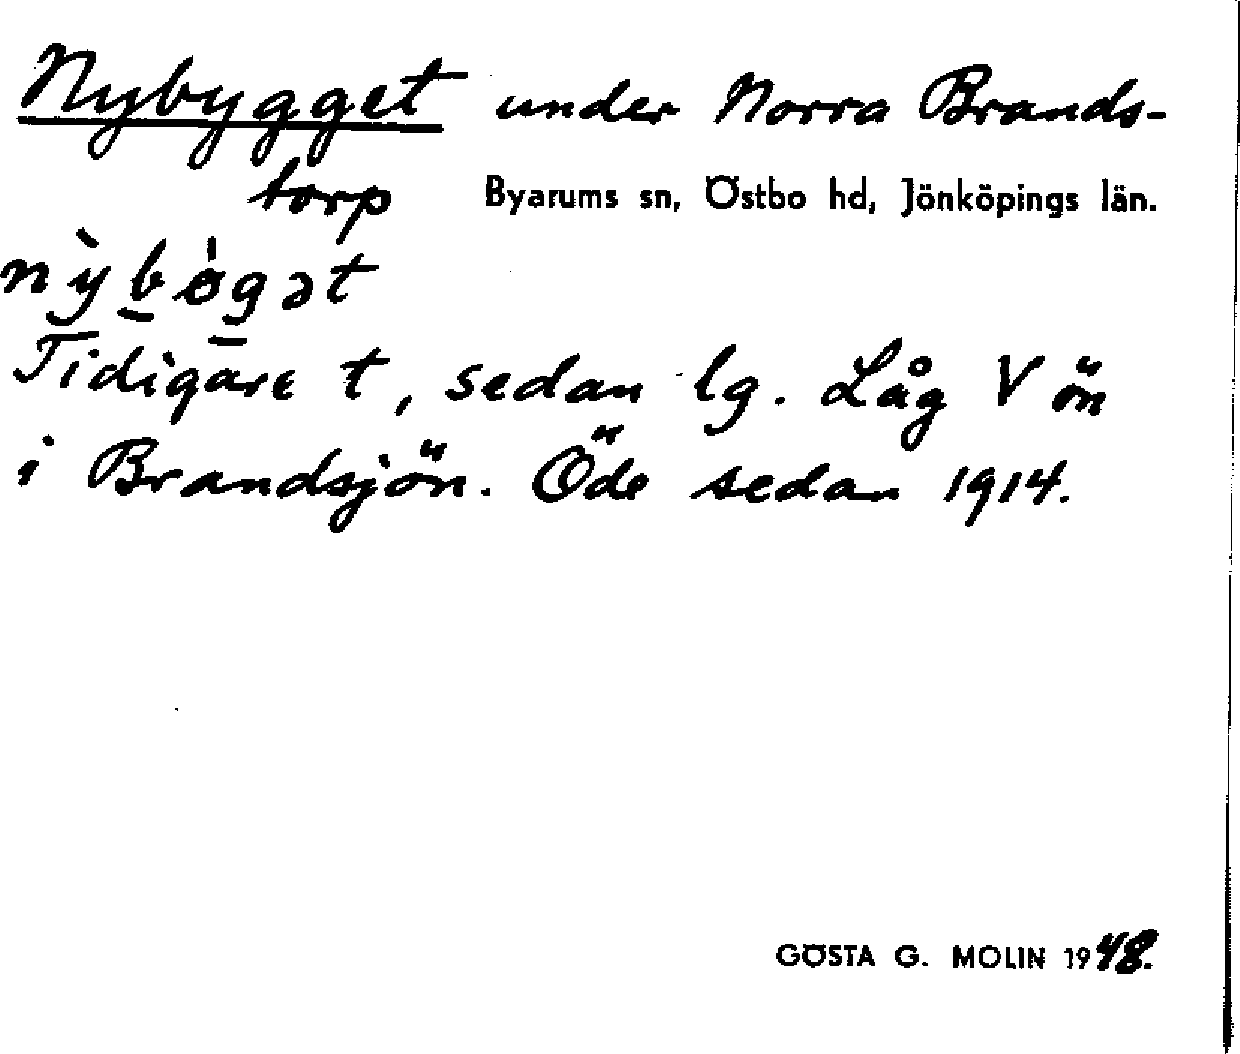 Nybygget under Norra Brands-
torp Byarums sn, Östbo hd, Jönköpings län.
nỳbøgət
Tidigare t, sedan lg. Låg V ön
i Brandsjön. Öde sedan 1914.
GÖSTA G. MOLIN 1948.